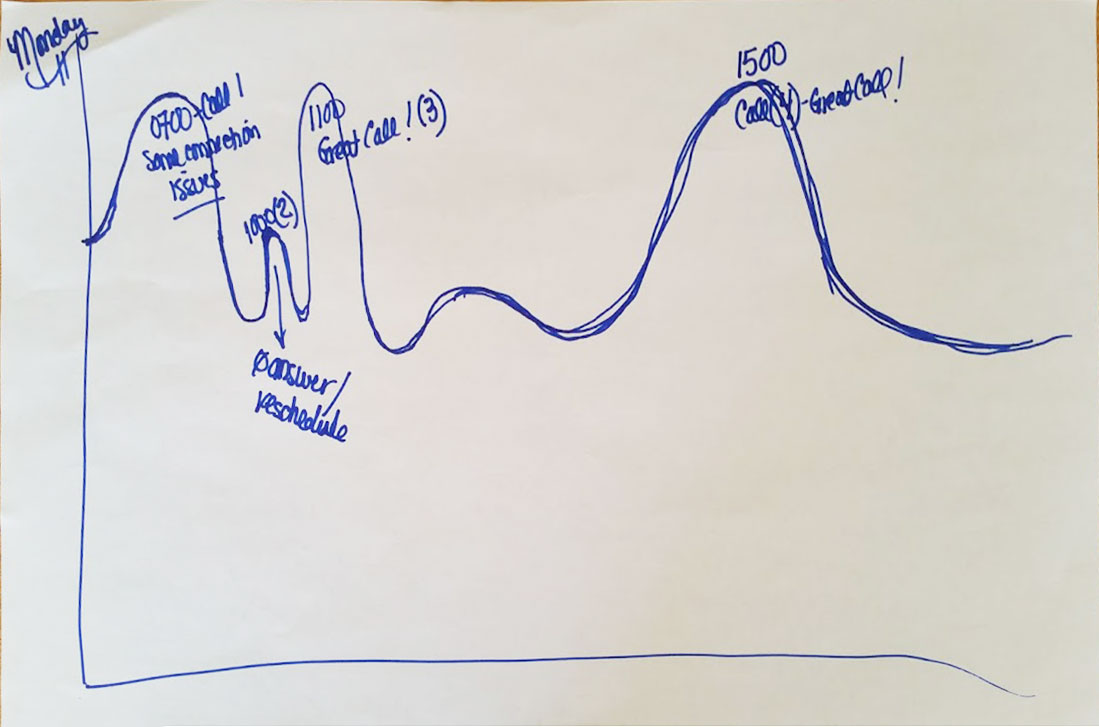 Monday
0700 - Call 1
Some connection
issues
1000(2)
Ø answer/
reschedule
1100
Great Call! (3)
1500
Call(4)-Great Call!